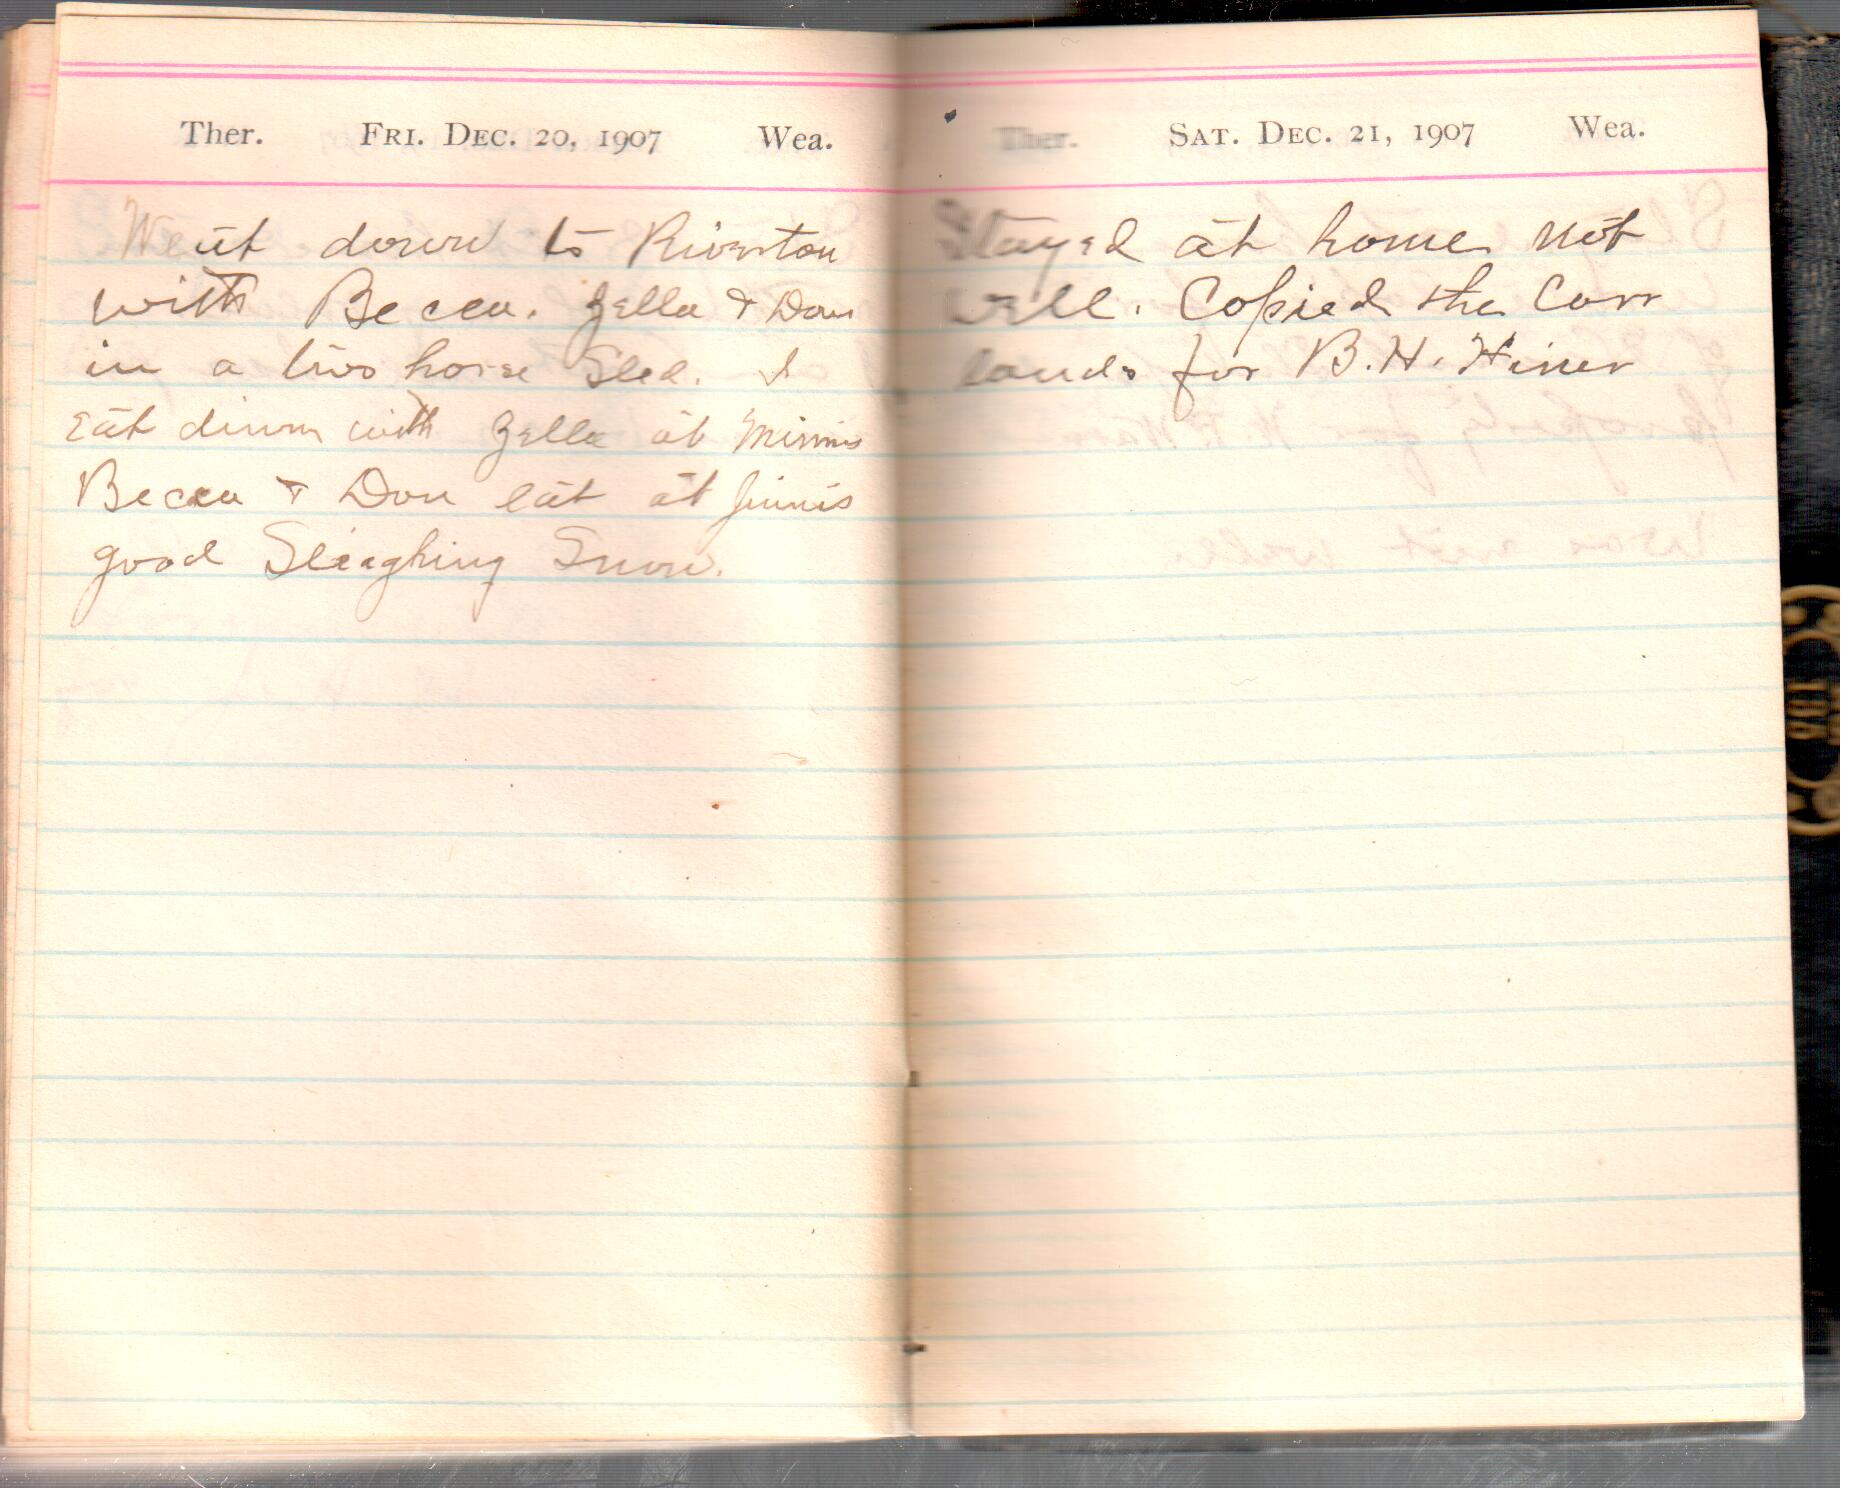 Ther. FRI. DEC. 20, 1907 Wea.
Went down to Riverton
with Becca. Zella & Don
in a two horse Sled. I
Eat dinner with Zella at Minnis
Becca & Don eat at Jinnis
good Sleaghing Snow.
Ther. SAT. DEC. 21, 1907 Wea.
Stayed at home not
well. Copied the Carr
lands for B. H. Hiner